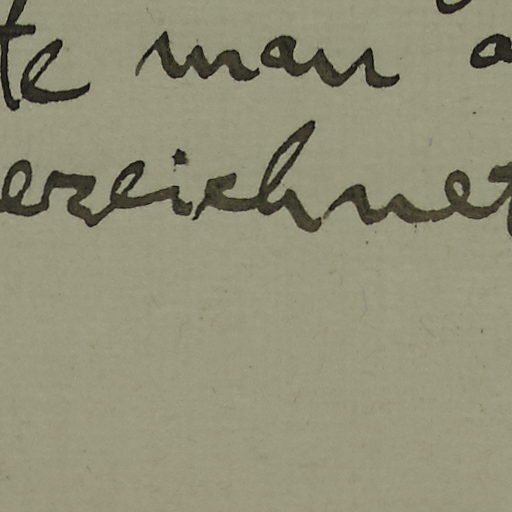 te man a
erzeichnet